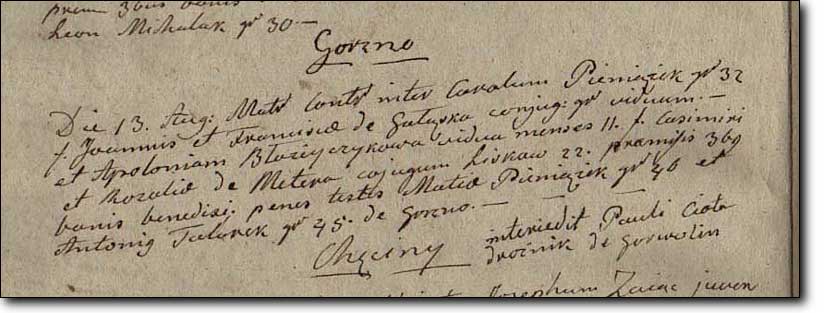 præm 3bus banis
Leon Michalak gr 30 —
Gorzno
Die 13. Aug: Matr Contr inter Carolum Pieniązek gr 32
f. Joannis et Francisæ de Gałąska conjug: gr viduum. —
et Apoloniam Błażyczykowa vidua menses 11. f. Casimiri
et Rozaliæ de Metera cojugum Liskaw 22. præmisis 3bq
banis benedixi. penes testes Matiæ Pieniązek gr 46 et
Antonig Talarek gr 45. de Gorzno. —
Chęciny interiedit Pauli Ciota
drożnik de Gorwolin
Josephum Zaiac juven